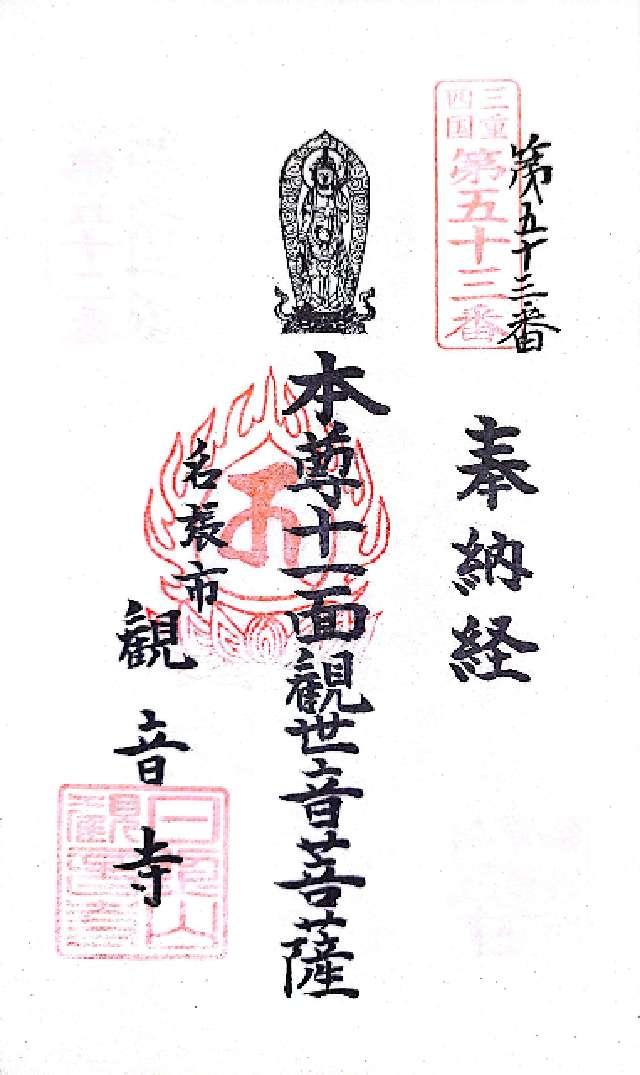 三重
四国
第五十三番
第五十三番
奉納経
本尊十一面観世音菩薩
名張市
観音寺